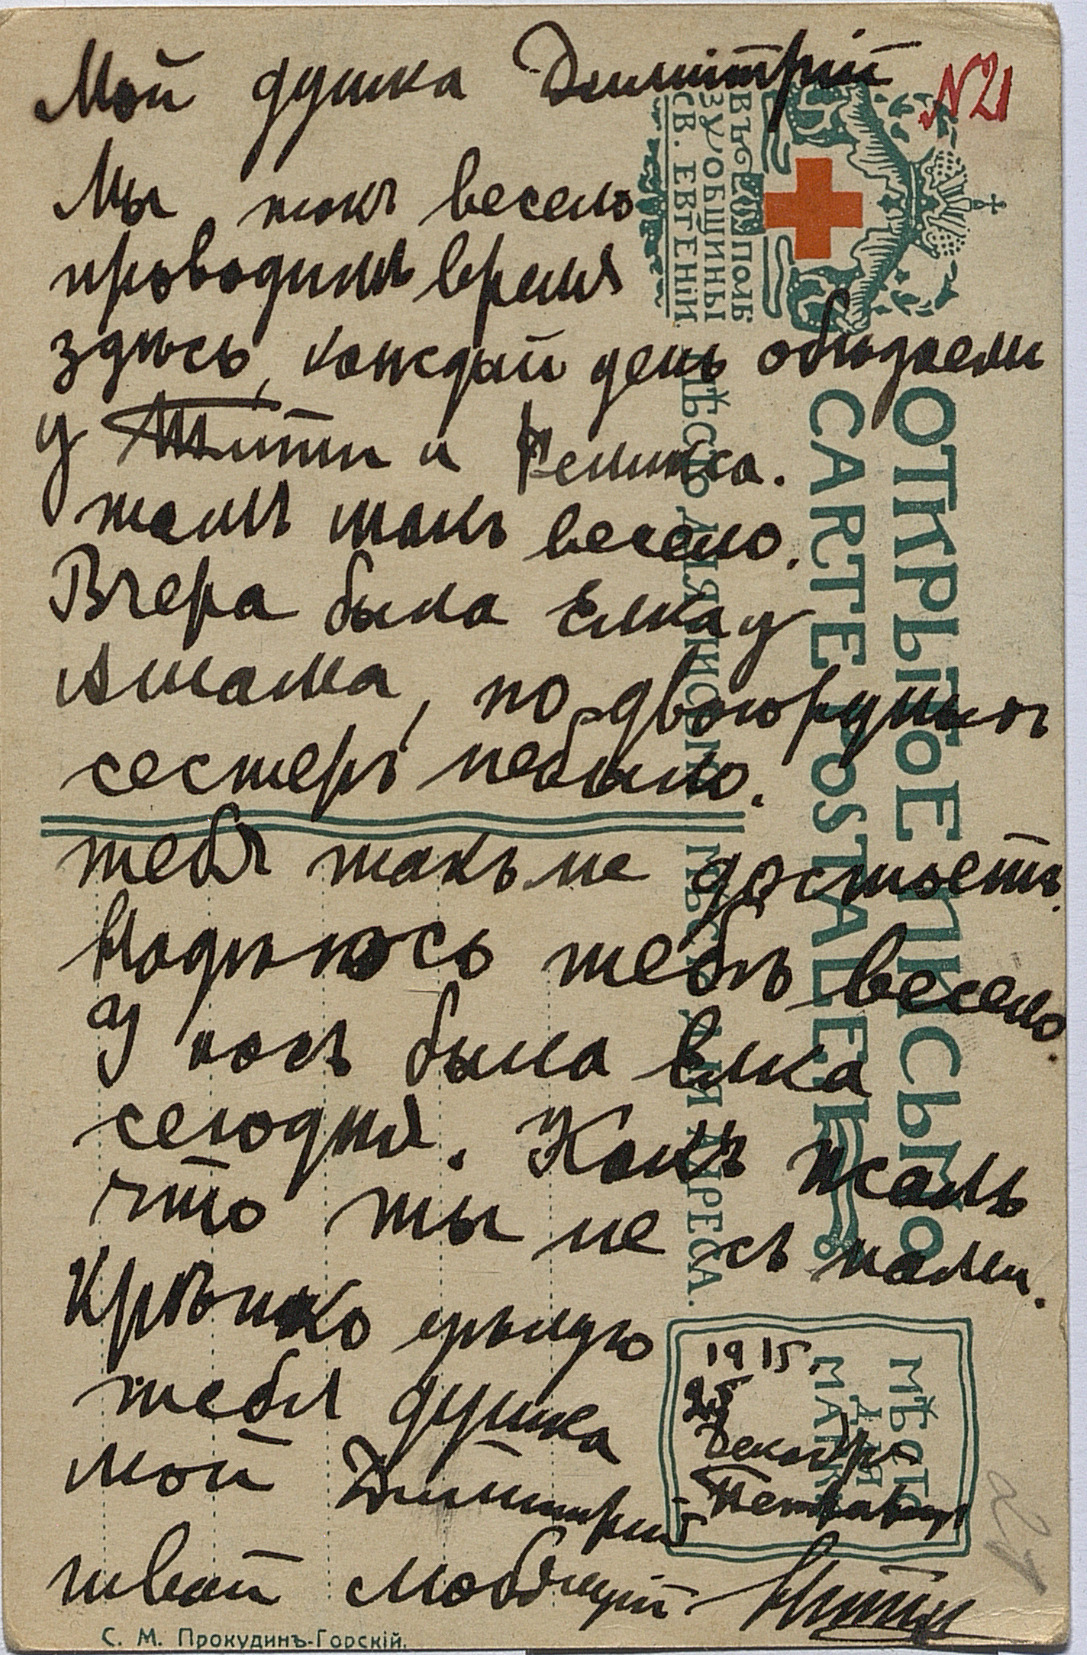 Мой душка Димитрій
N21
Мы такъ весело
проводимъ время
здѣсь, каждый день обѣдаемъ
у Титти и
тамъ такъ весело.
Вчера была Елка у
но двоюрдныхъ
сестеръ небыло.
тебя такъ не достоетъ.
Надѣюсь тебѣ весело.
У насъ была Елка
сегодня. Какъ жаль
что ты не съ нами.
Крѣпко цѣлую
тебя душка
мой Димитрій
твой любящій
1915.
25
Декабрь
ВЪ ПОЛЬЗУ ОБЩИНЫ
СВ. ЕВГЕНІИ
ОТКРЫТОЕ ПИСЬМО
CARTE POSTALE
МѢСТО ДЛЯ ПИСЬМА
МѢСТО ДЛЯ АДРЕСА.
МѢСТО
ДЛЯ
МАРКИ
21
С. М. Прокудинъ-Горскій.